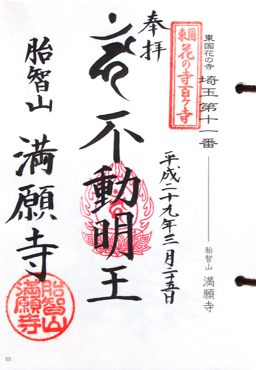 東国花の寺 埼玉第十一番 胎智山 満願寺
東国
花の寺百ケ寺
奉拝
平成二十九年三月二十五日
不動明王
胎智山 満願寺
胎智山
満願寺
53